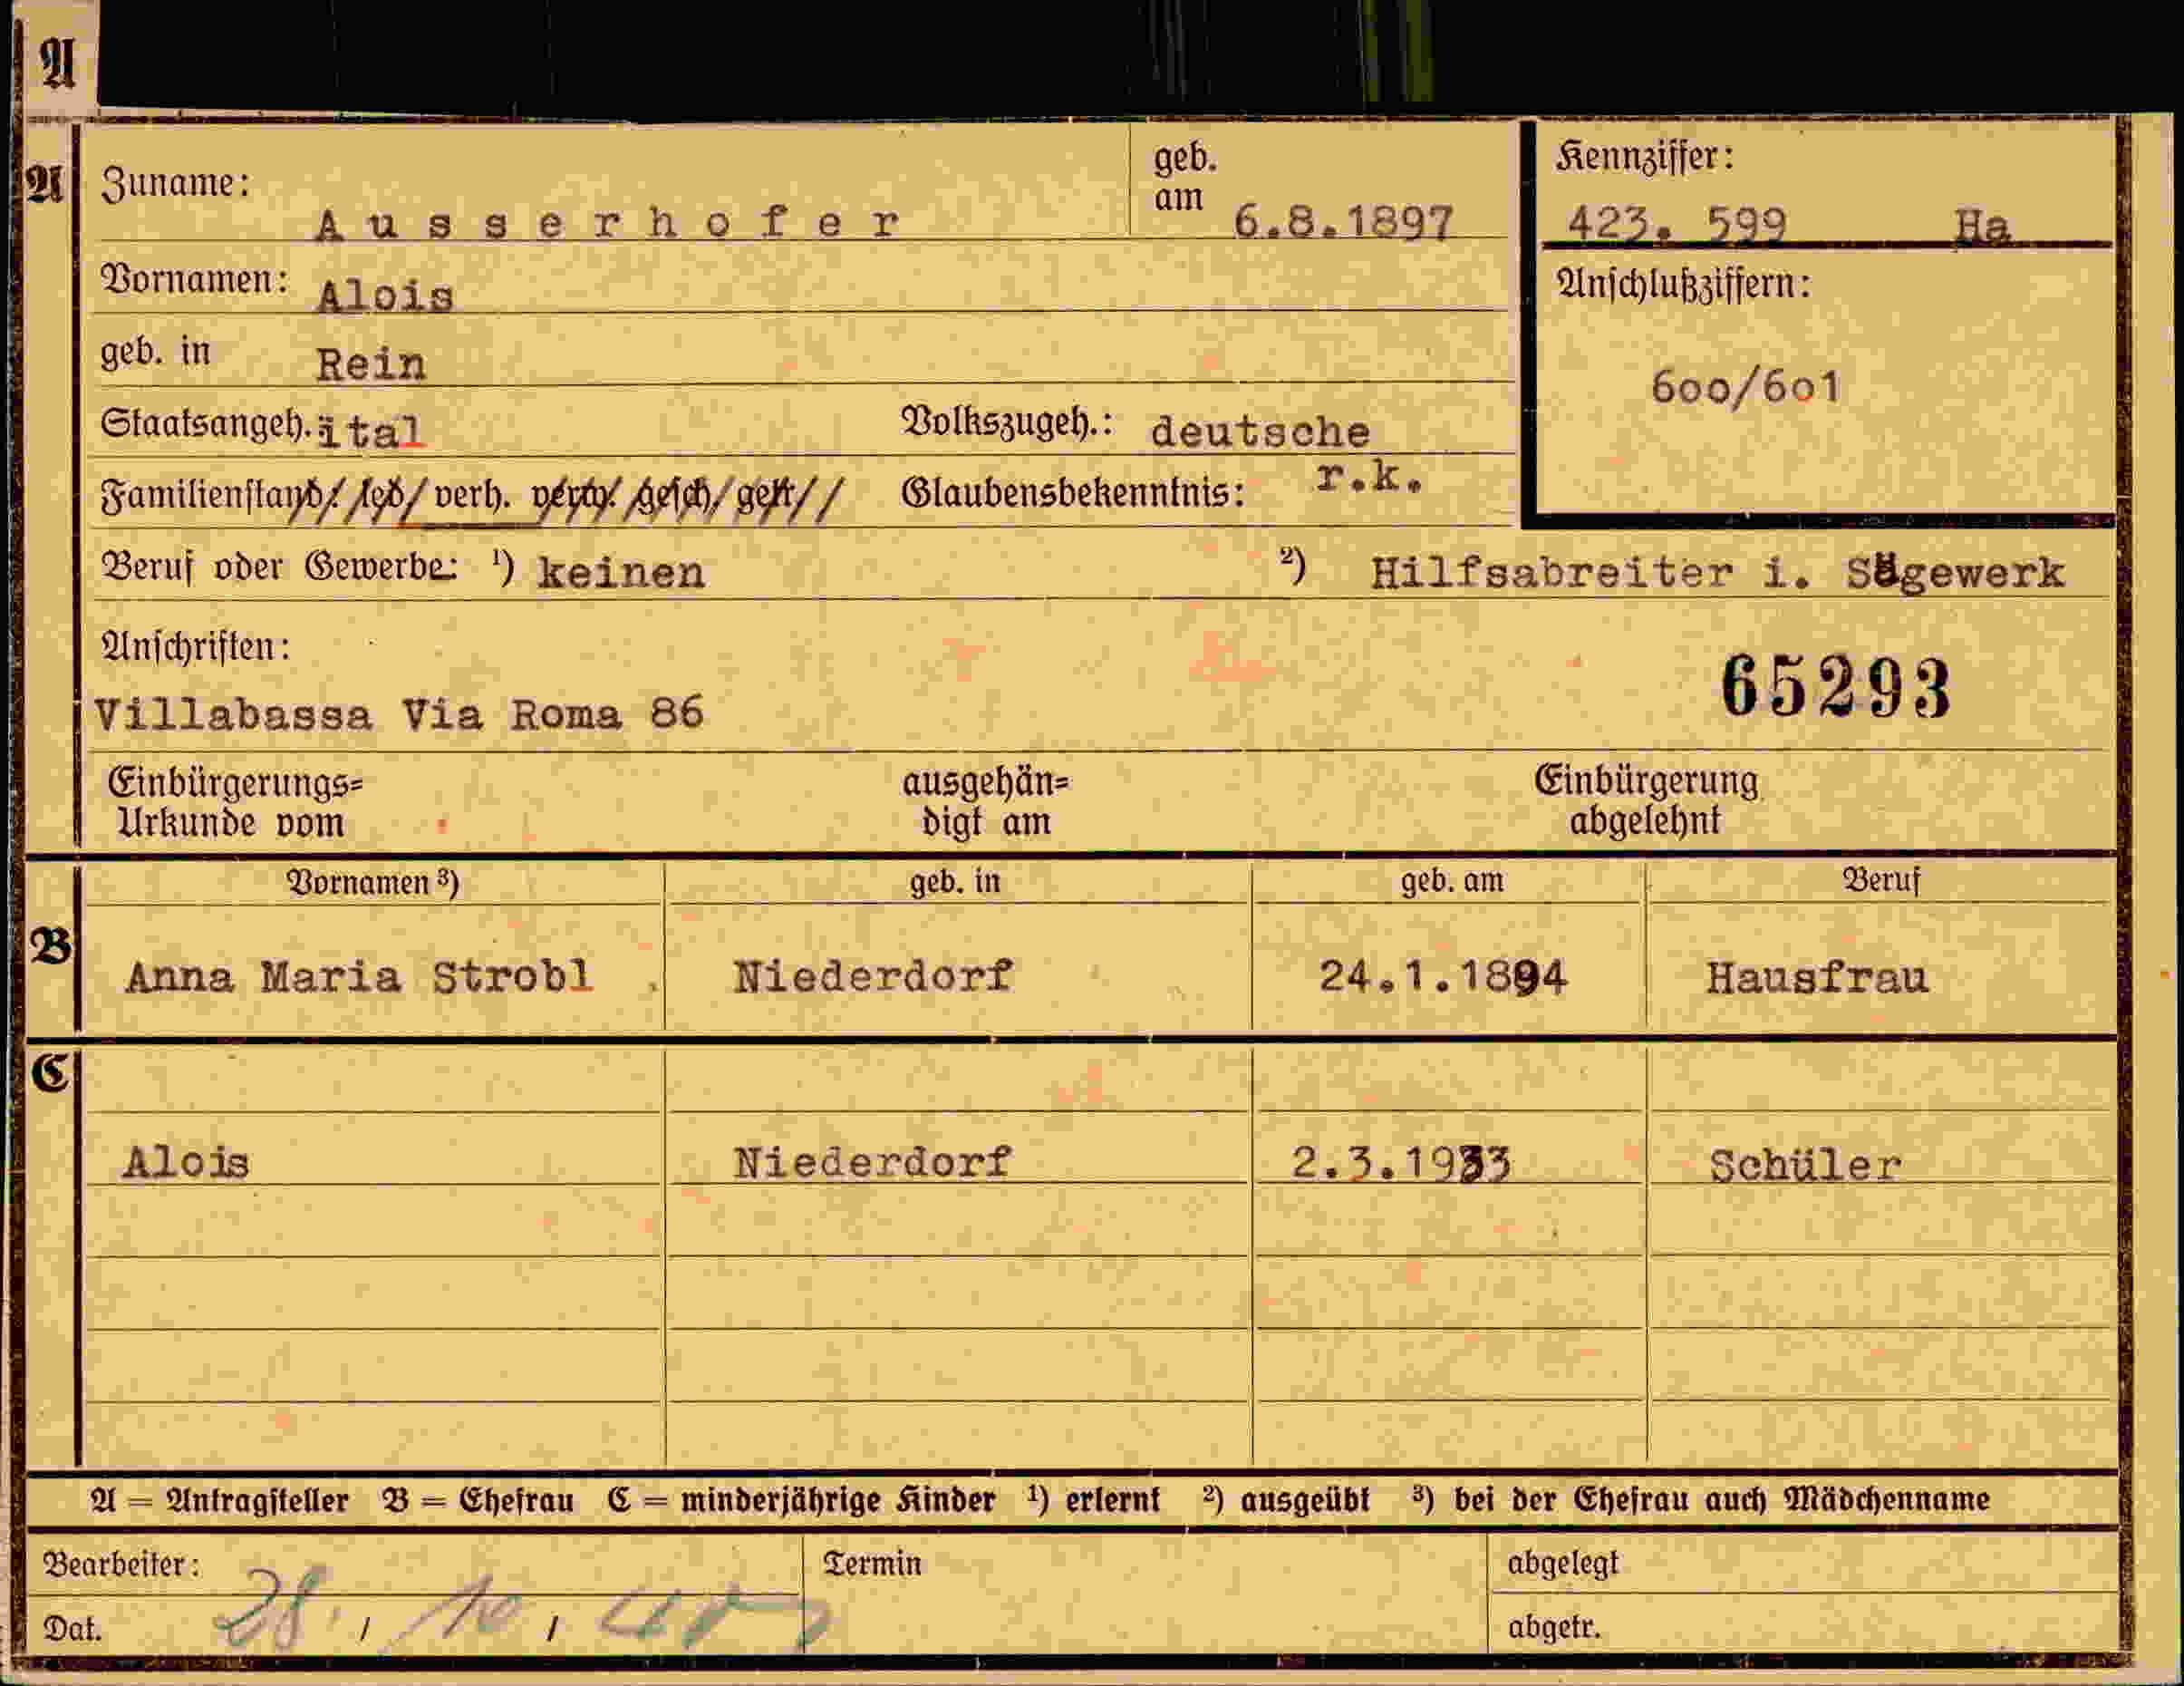 A
A
Zuname: Ausserhofer
geb. am 6.8.1897
Kennziffer:
423. 599 Ha
Vornamen: Alois
Anschlußziffern:
600/601
geb. in Rein
Staatsangeh. ital Volkszugeh.: deutsche
Familienstand: led. verh. verw. gesch. getr. Glaubensbekenntnis: r.k.
Beruf oder Gewerbe: ¹) keinen ²) Hilfsabreiter i. Sägewerk
Anschriften:
65293
Villabassa Via Roma 86
Einbürgerungs= ausgehän= Einbürgerung
Urkunde vom digt am abgelehnt
Vornamen ³) geb. in geb. am Beruf
B
Anna Maria Strobl Niederdorf 24.1.1894 Hausfrau
C
Alois Niederdorf 2.3.1933 Schüler
A = Antragsteller B = Ehefrau C = minderjährige Kinder ¹) erlernt ²) ausgeübt ³) bei der Ehefrau auch Mädchenname
Bearbeiter: Termin abgelegt
Dat. 28. / 10 / abgetr.